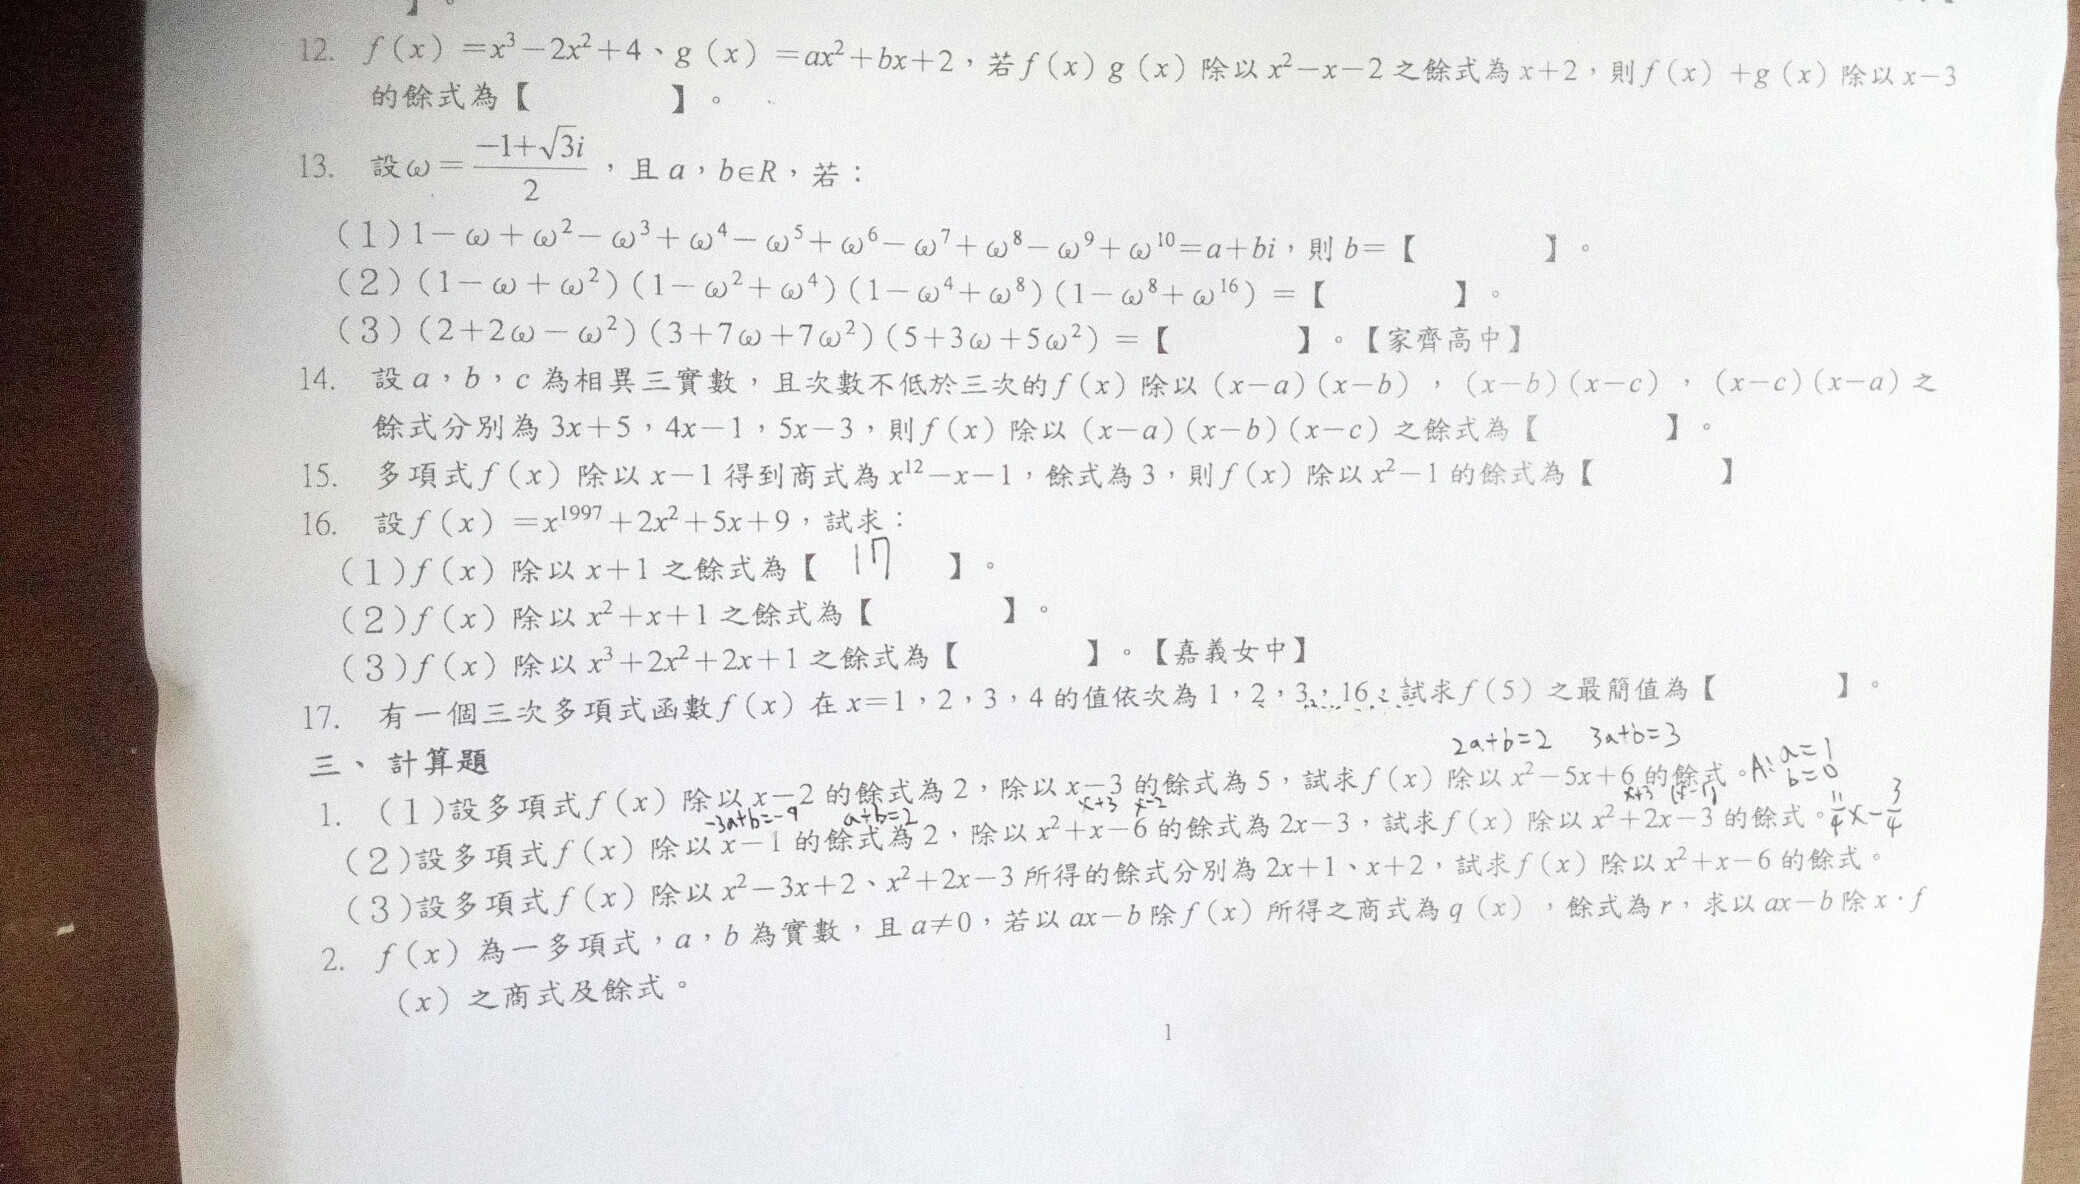 】。
12. f(x)=x³−2x²+4、g(x)=ax²+bx+2，若f(x)g(x)除以x²−x−2之餘式為x+2，則f(x)+g(x)除以x−3
的餘式為【 】。
13. 設ω=(−1+√3i)/2，且a，b∈R，若：
(1)1−ω+ω²−ω³+ω⁴−ω⁵+ω⁶−ω⁷+ω⁸−ω⁹+ω¹⁰=a+bi，則b=【 】。
(2)(1−ω+ω²)(1−ω²+ω⁴)(1−ω⁴+ω⁸)(1−ω⁸+ω¹⁶)=【 】。
(3)(2+2ω−ω²)(3+7ω+7ω²)(5+3ω+5ω²)=【 】。【家齊高中】
14. 設a，b，c為相異三實數，且次數不低於三次的f(x)除以(x−a)(x−b)，(x−b)(x−c)，(x−c)(x−a)之
餘式分別為3x+5，4x−1，5x−3，則f(x)除以(x−a)(x−b)(x−c)之餘式為【 】。
15. 多項式f(x)除以x−1得到商式為x¹²−x−1，餘式為3，則f(x)除以x²−1的餘式為【 】
16. 設f(x)=x¹⁹⁹⁷+2x²+5x+9，試求：
(1)f(x)除以x+1之餘式為【 17 】。
(2)f(x)除以x²+x+1之餘式為【 】。
(3)f(x)除以x³+2x²+2x+1之餘式為【 】。【嘉義女中】
17. 有一個三次多項式函數f(x)在x=1，2，3，4的值依次為1，2，3，16，試求f(5)之最簡值為【 】。
2a+b=2 3a+b=3
三、計算題
1. (1)設多項式f(x)除以x−2的餘式為2，除以x−3的餘式為5，試求f(x)除以x²−5x+6的餘式。A: a=1 b=0
-3a+b=-9 a+b=2 x+3 x-2 x+3
(2)設多項式f(x)除以x−1的餘式為2，除以x²+x−6的餘式為2x−3，試求f(x)除以x²+2x−3的餘式。11/4 x−3/4
(3)設多項式f(x)除以x²−3x+2、x²+2x−3所得的餘式分別為2x+1、x+2，試求f(x)除以x²+x−6的餘式。
2. f(x)為一多項式，a，b為實數，且a≠0，若以ax−b除f(x)所得之商式為q(x)，餘式為r，求以ax−b除x·f
(x)之商式及餘式。
1